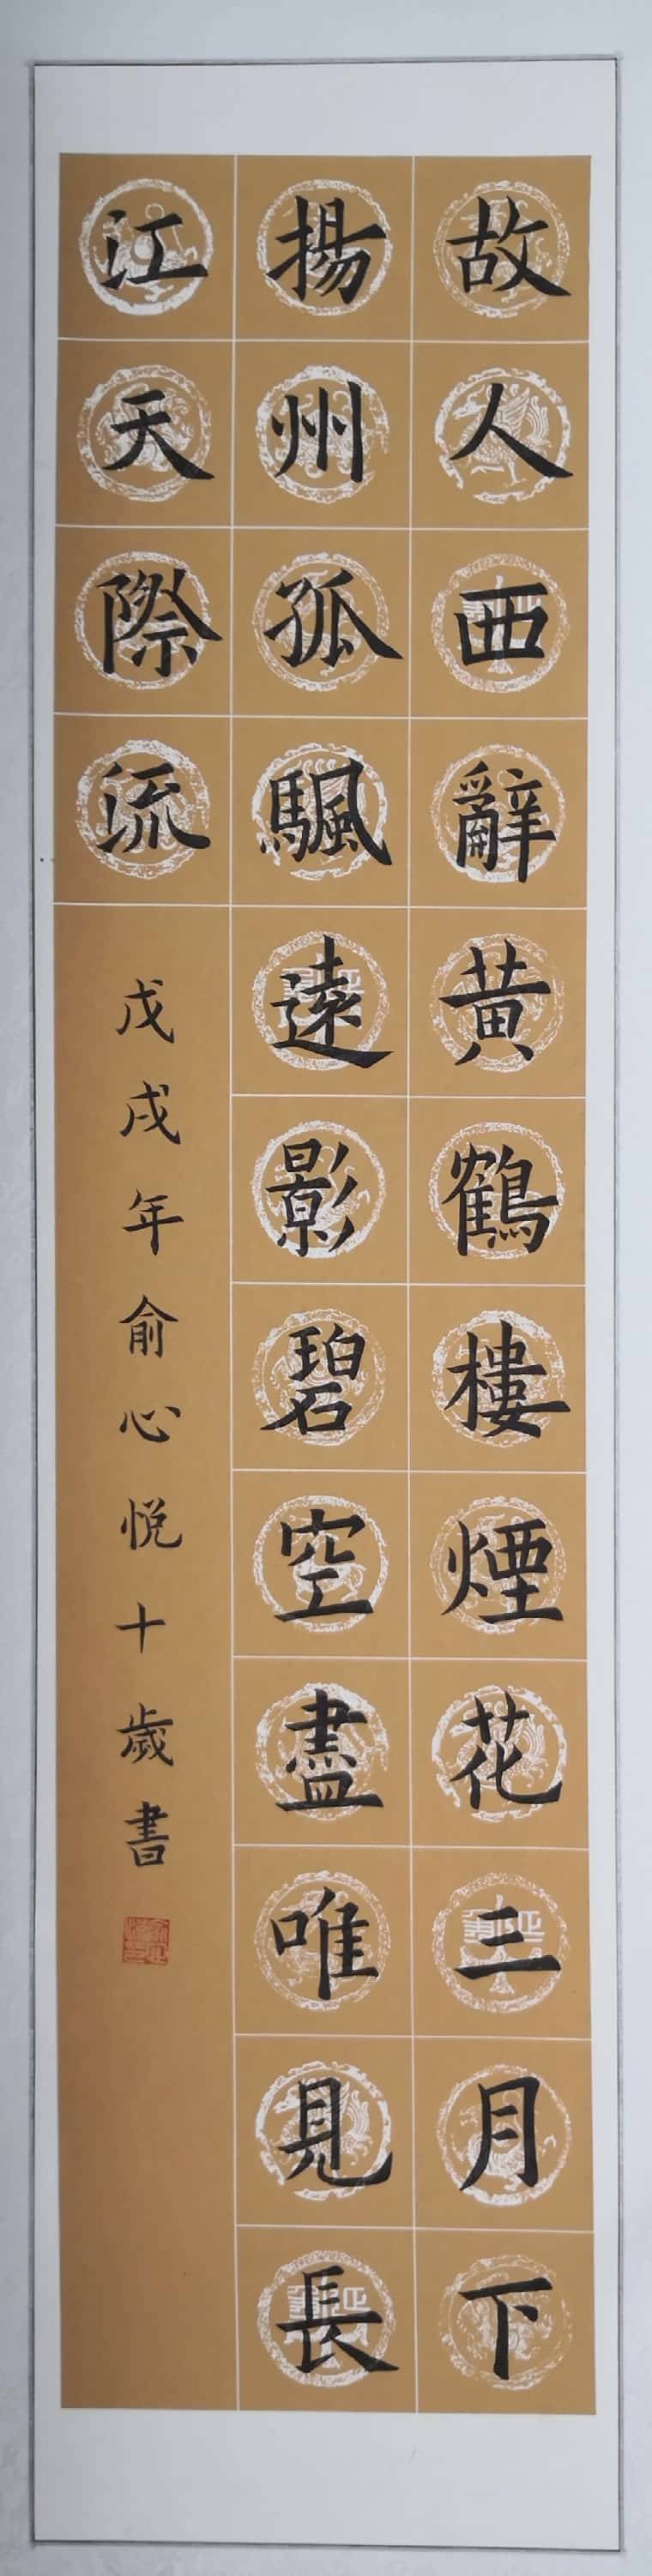 故人西辭黄鶴樓煙花三月下
揚州孤颿遠影碧空盡唯見長
江天際流
戊戌年俞心悦十歲書